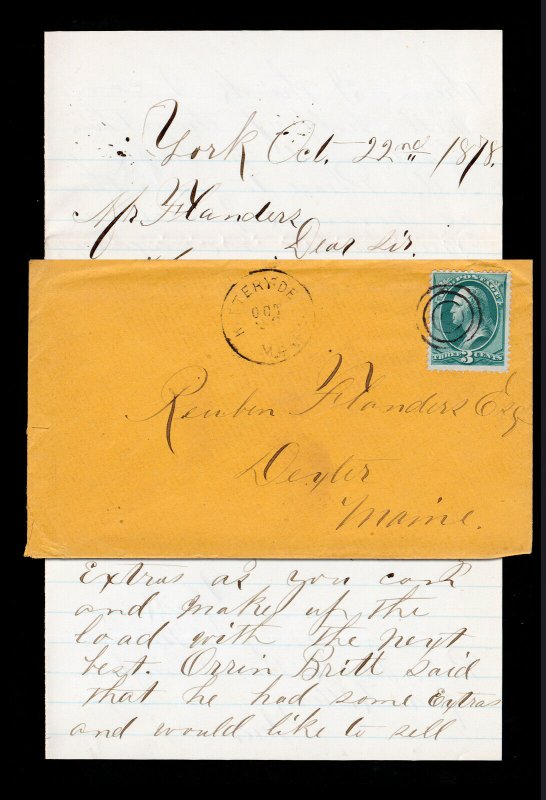 York Oct. 22nd 1878.
Mr Flanders
Dear Sir.
OCT
U.S. POSTAGE
THREE 3 CENTS
Reuben Flanders Esq
Dexter
Maine.
Extras as you can
and make up the
load with the next
best. Orrin Britt said
that he had some Extras
and would like to sell